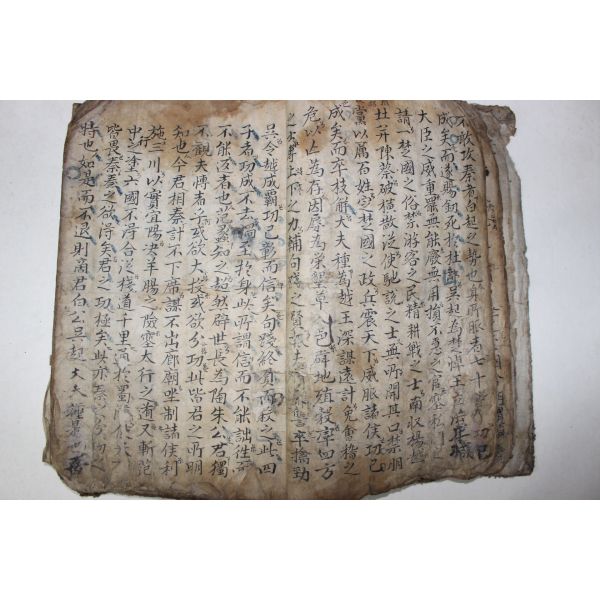 不敢攻秦者白起之勢也身所服者七十餘城功已
成矣而遂賜釖死於杜郵吳起為楚悼王立法卑減
大臣之威重罷無能廢無用損不急之官塞私門之
請一楚國之俗禁游客之民精耕戰之士南收楊越
北并陳蔡破橫散從使馳說之士無所開其口禁朋
黨以厲百姓定楚國之政兵震天下威服諸侯功已
成矣而卒枝解大夫種為越王深謀遠計免會稽之
危以亡為存因辱為榮墾草入邑辟地殖穀率四方
之士專上下之力輔句踐之賢報夫差之讐卒擒勁
吳令越成霸功已彰而信矣句踐終負而殺之此四
子者功成不去禍至於身此所謂信而不能詘往而
不能返者也范蠡知之超然辟世長為陶朱公君獨
不觀夫博者乎或欲大投或欲分功此皆君之所明
知也今君相秦計不下席謀不出廊廟坐制諸侯利
施三川以實宜陽決羊腸之險塞太行之道又斬范
中行之塗六國不得合從棧道千里通於蜀漢使天下
皆畏秦秦之欲得矣君之功極矣此亦秦之分功之
時也如是而不退則商君白公吳起大夫種是也吾